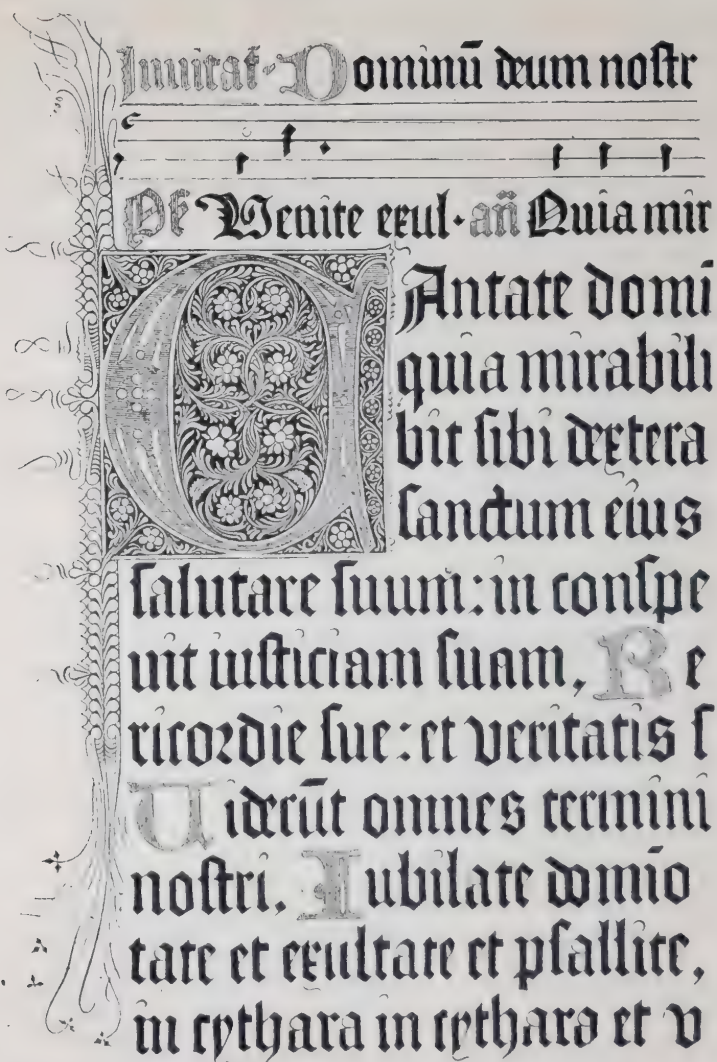 Inuitat̄· Dominū deum nostr
Ps̄ Venite exul· an̄ Quia mir
CAntate domī
quia mirabili
bit sibi dextera
sanctum eius
salutare suum: in conspe
uit iusticiam suam, Re
ricordie sue: et veritatis s
Uiderūt omnes termini
nostri, Iubilate domīo
tate et exultate et psallite,
in cythara in cythara et v